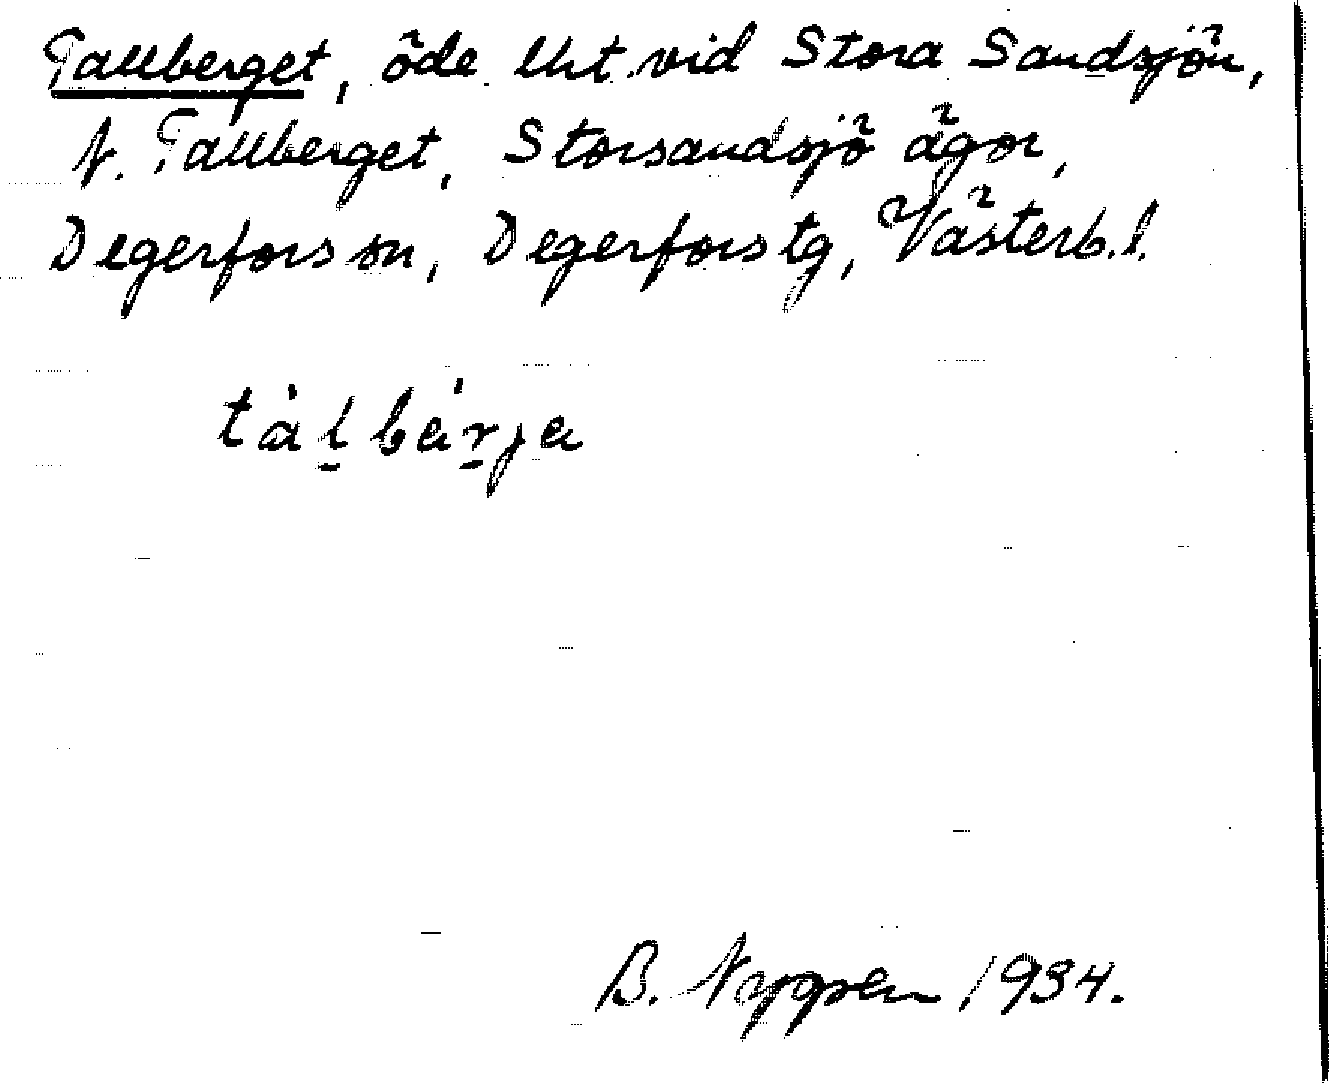 Tallberget, öde lht. vid Stora Sandsjön,
N. Tallberget, Storsandsjö ägor,
Degerfors sn, Degerfors tg, Västerb. l.
tàḻbár̲ja
B. Nygren 1934.